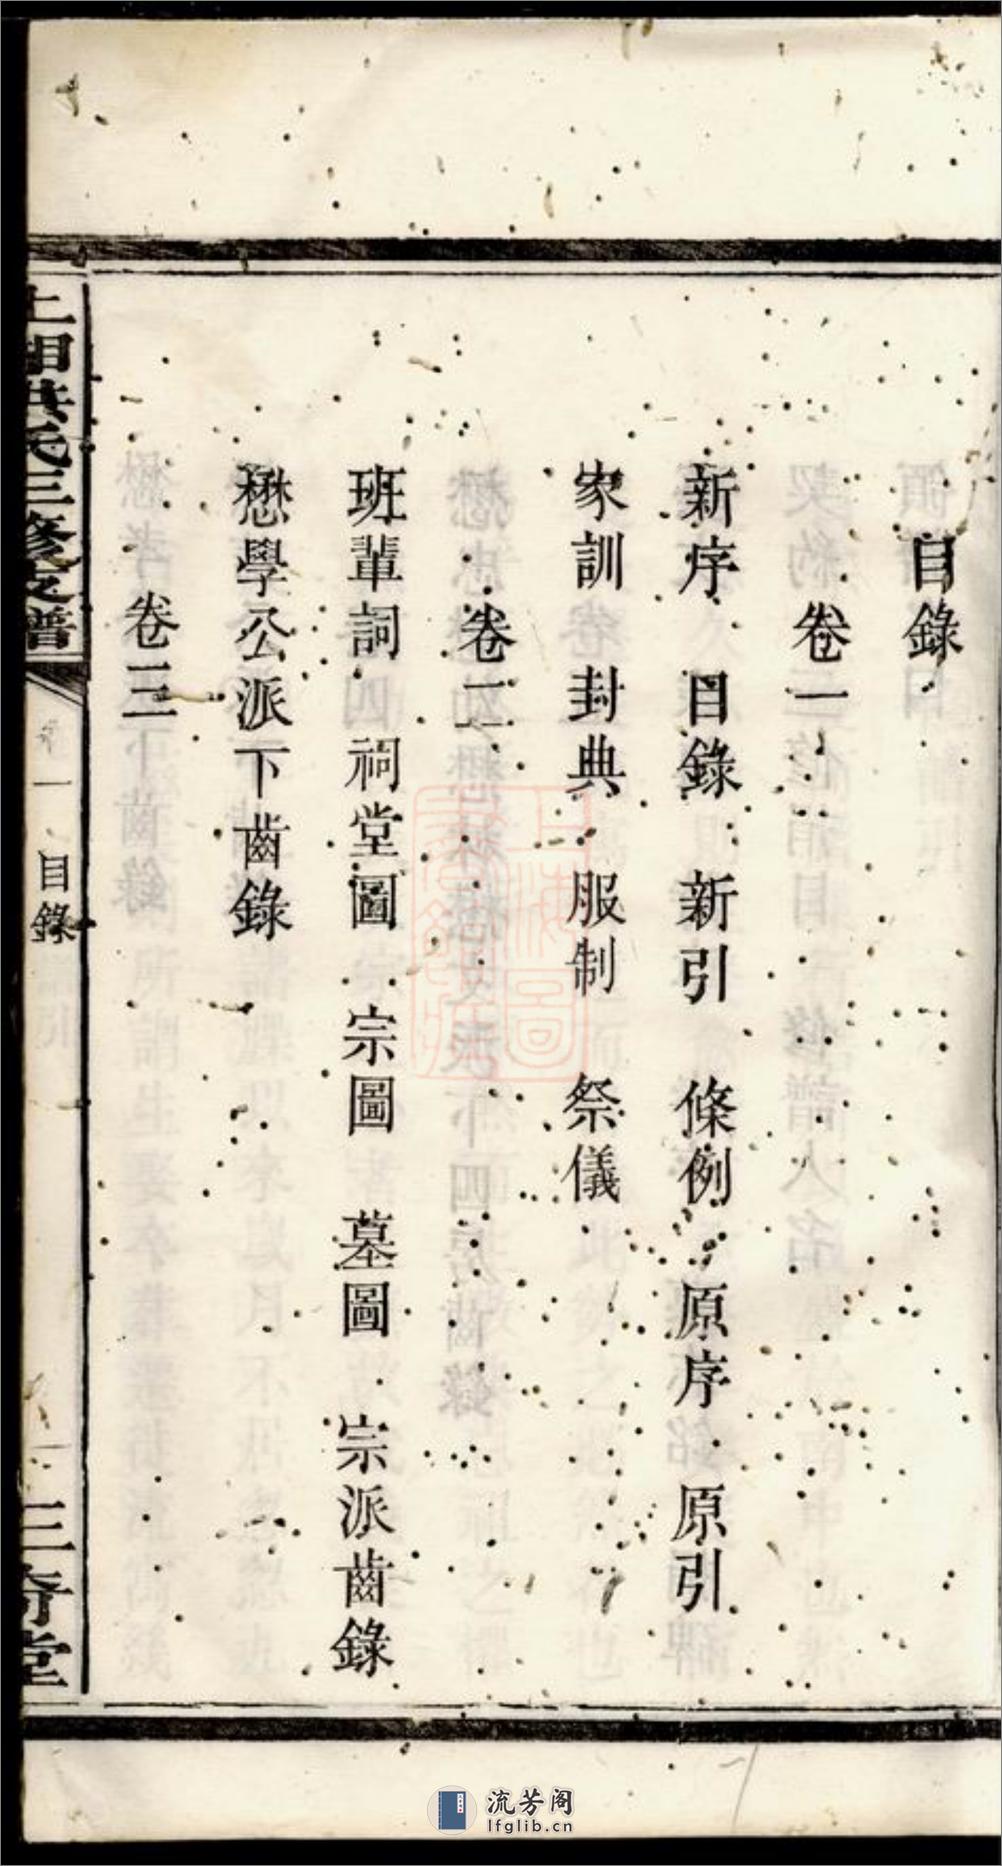 目錄
卷一
新序 目錄 新引 條例 原序 原引
家訓 封典 服制 祭儀
卷二
班輩詞 祠堂圖 宗圖 墓圖 宗派齒錄
懋學公派下齒錄
卷三
上湘洪氏三修支譜
卷一 目錄
三奇堂
流芳阁
lfglib.cn